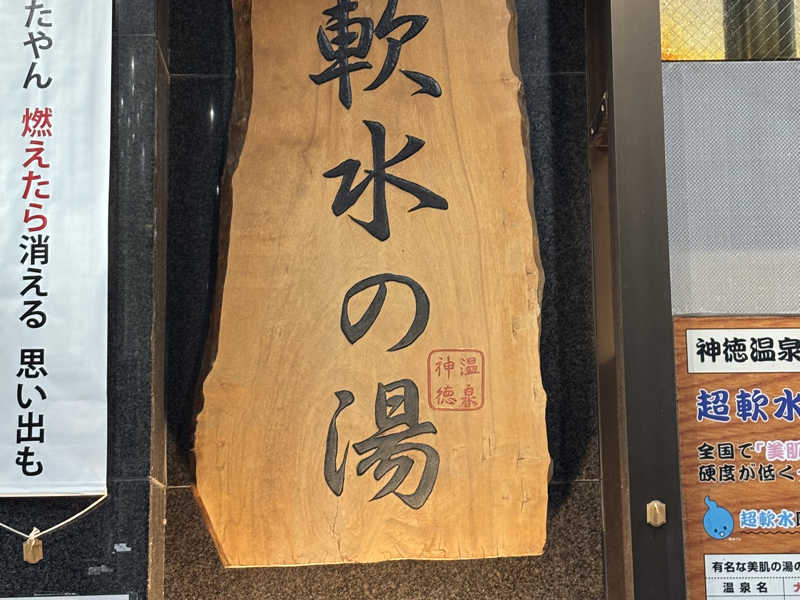 たやん 燃えたら消える 思い出も
軟水の湯
温泉
神徳
神徳温泉
超軟水
全国で『美肌
硬度が低く
超軟水
有名な美肌の湯の
温泉名